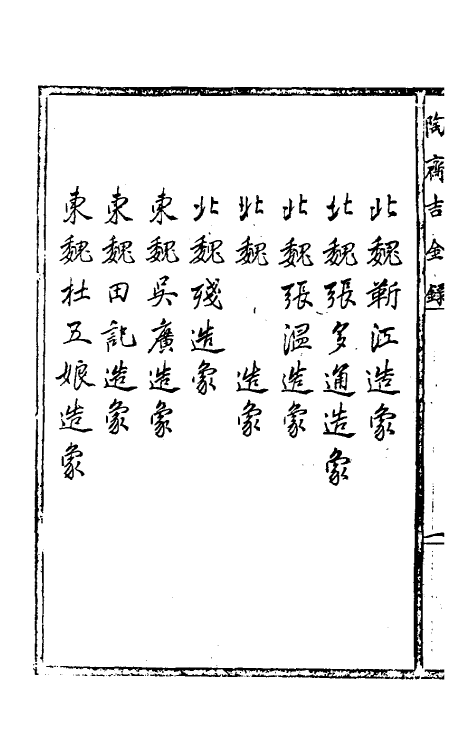 陶齋吉金錄
一
北魏靳江造象
北魏張多通造象
北魏張溫造象
北魏 造象
北魏殘造象
東魏吳廣造象
東魏田訖造象
東魏杜五娘造象